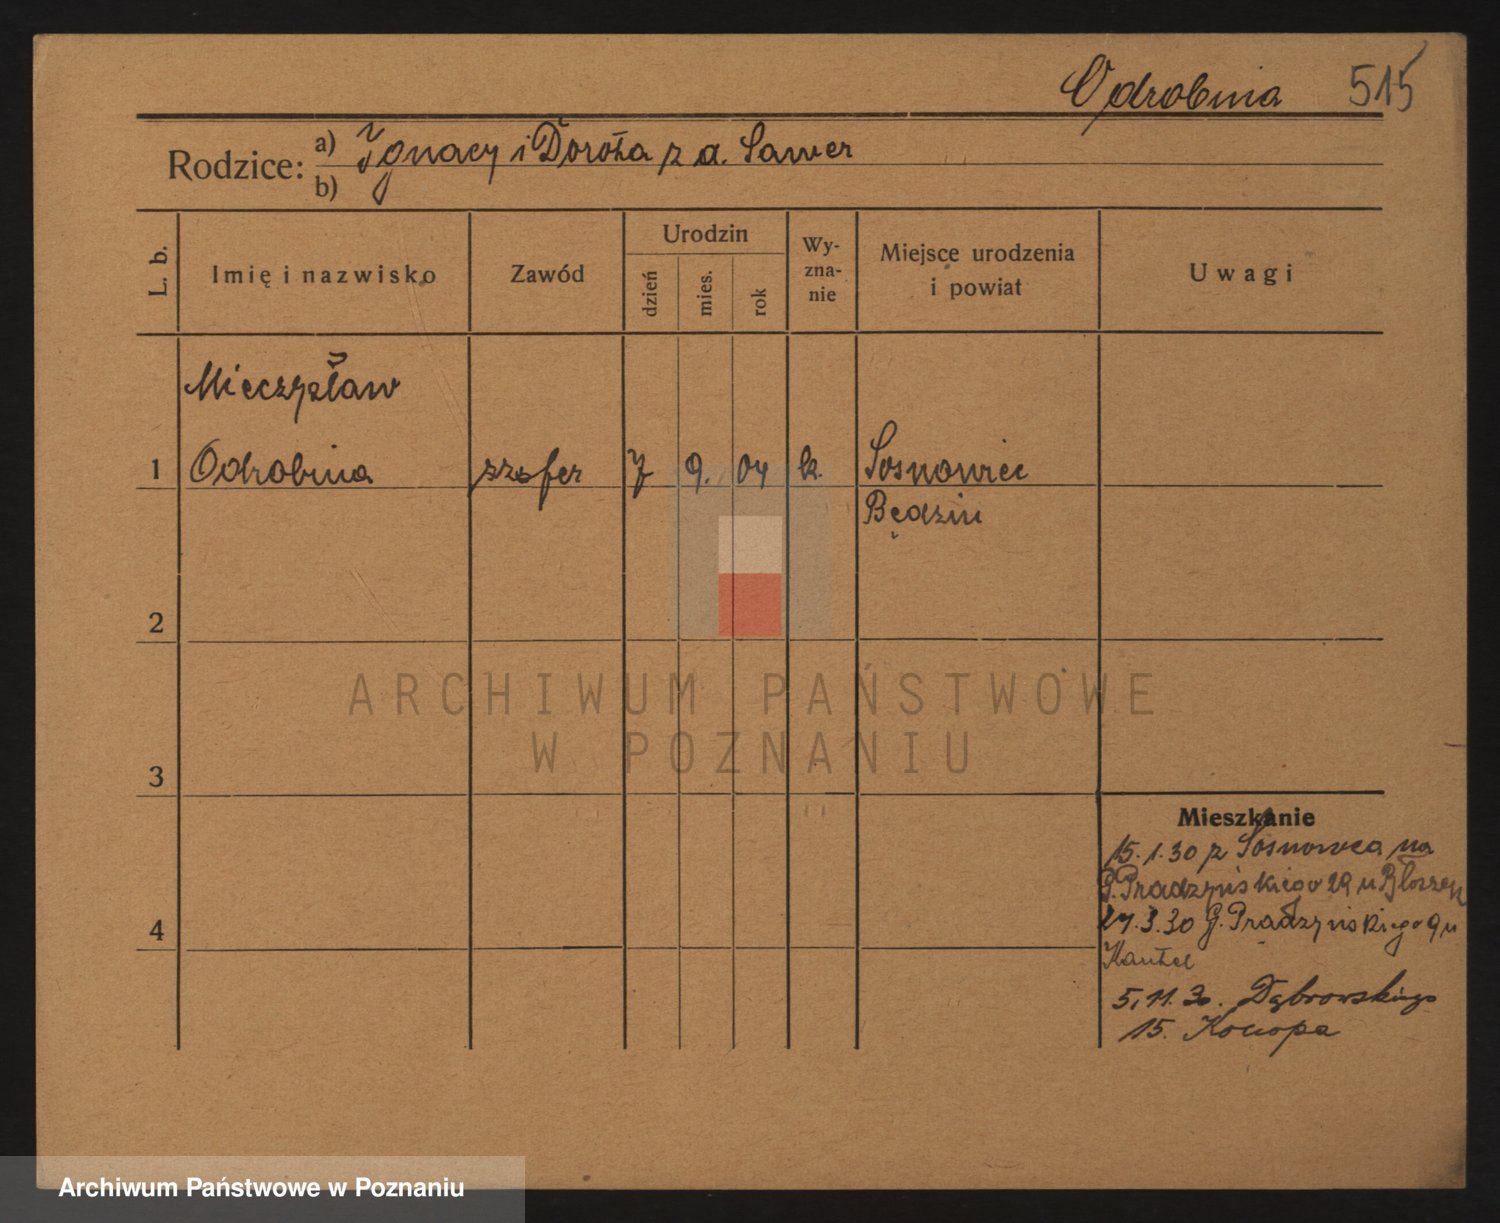 Odrobina 515
Rodzice: a) Ignacy i Dorota z d. Sawer
b)
L. b. Imię i nazwisko Zawód Urodzin dzień mies. rok Wy-zna-nie Miejsce urodzenia i powiat Uwagi
Mieczysław
1 Odrobina szofer 7 9. 04 k. Sosnowiec
Będzin
2
ARCHIWUM PAŃSTWOWE
W POZNANIU
3
Mieszkanie
15.1.30 z Sosnowca na
G. Prądzyńskiego 29 u
4 3.30 G. Prądzyńskiego 9 u
5.11.30. Dąbrowskiego
15. Konopa
Archiwum Państwowe w Poznaniu